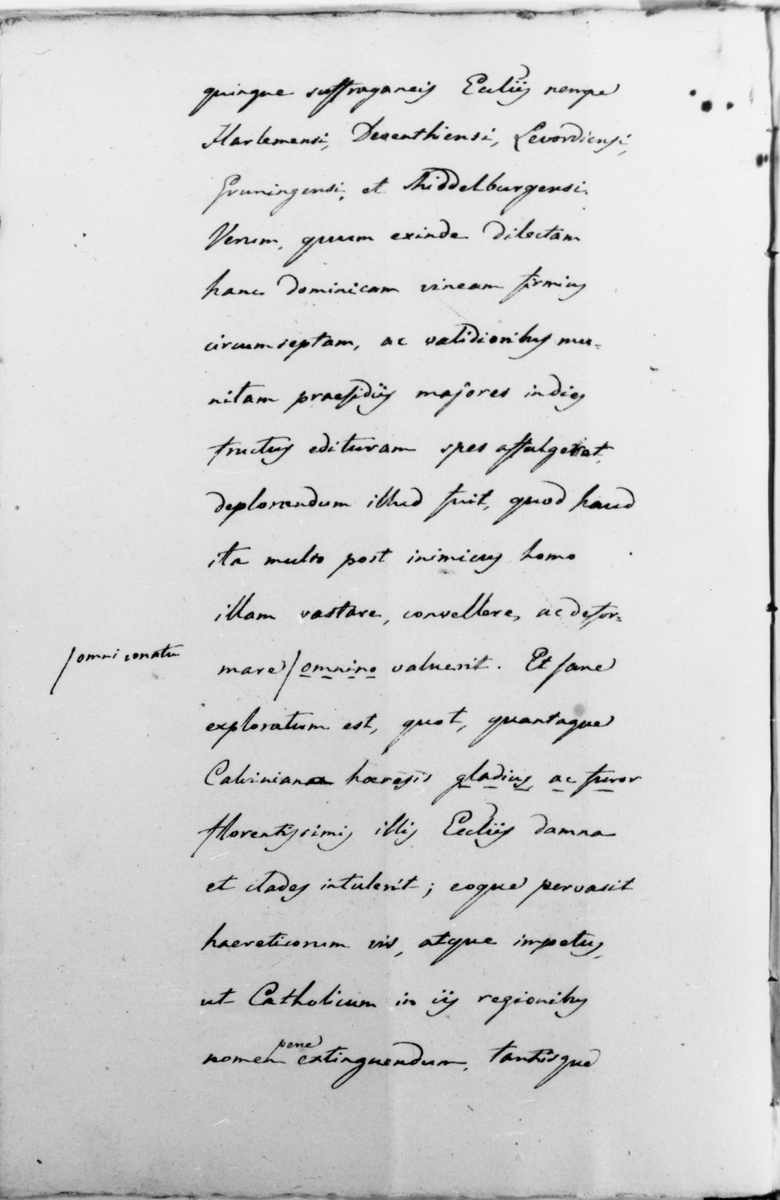 quinque suffraganeis Eccliis nempe
Harlemensi, Deventhiensi, Levordiensi,
Gruningensi, et Middelburgensi.
Verum, quum exinde dilectam
hanc dominicam vineam firmius
circumseptam, ac validioribus mu=
nitam praesidiis majores indies
fructus edituram spes affulgeret,
deplorandum illud fuit, quod haud
ita multo post inimicus homo
illam vastare, convellere, ac defor=
/omni conatu
mare / omnino valuerit. Et sane
exploratum est, quot, quantaque
Calviniana haeresis gladius, ac furor
florentissimis illis Eccliis damna
et clades intulerit; eoque pervasit
haereticorum vis, atque impetus,
ut Catholicum in iis regionibus
nomen pene extinguendum, tantisque